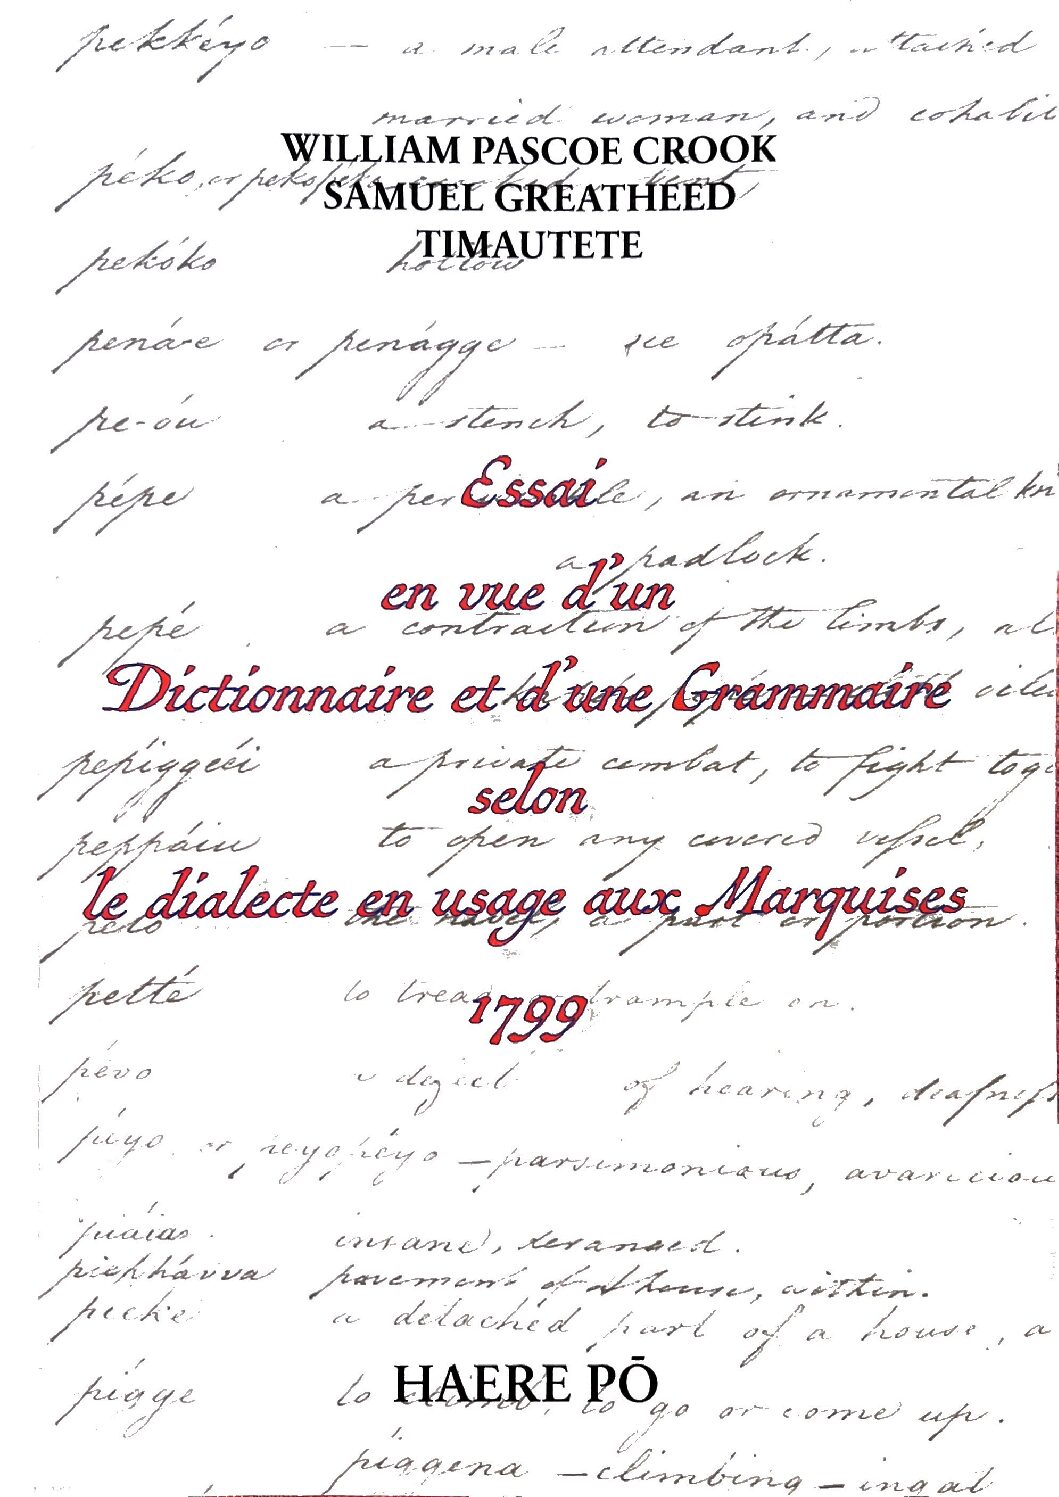 pekkéyo — a male attendant, attached
married woman, and cohabit
WILLIAM PASCOE CROOK
péko, or pekopéko
SAMUEL GREATHEED
TIMAUTETE
pekóko hollow
penáe or penágge — see opátta.
pe-óu a stench, to stink.
Essai
pépe a, an ornamental
a padlock.
en vue d'un
pepé a contraction of the limbs,
Dictionnaire et d'une Grammaire
pepiggéëi a private combat, to fight
selon
peppáiu to open any covered vessel,
le dialecte en usage aux Marquises
peto the navel, a part or portion.
petté to tread or trample on.
1799
pévo a deject of hearing, deafness
péyo or peyopéyo — parsimonious,
piáias insane, deranged.
piekhávva pavement of a house, within.
pieke a detached part of a house, a
HAERE PŌ
pígge to climb, to go or come up.
píggena — climbing —